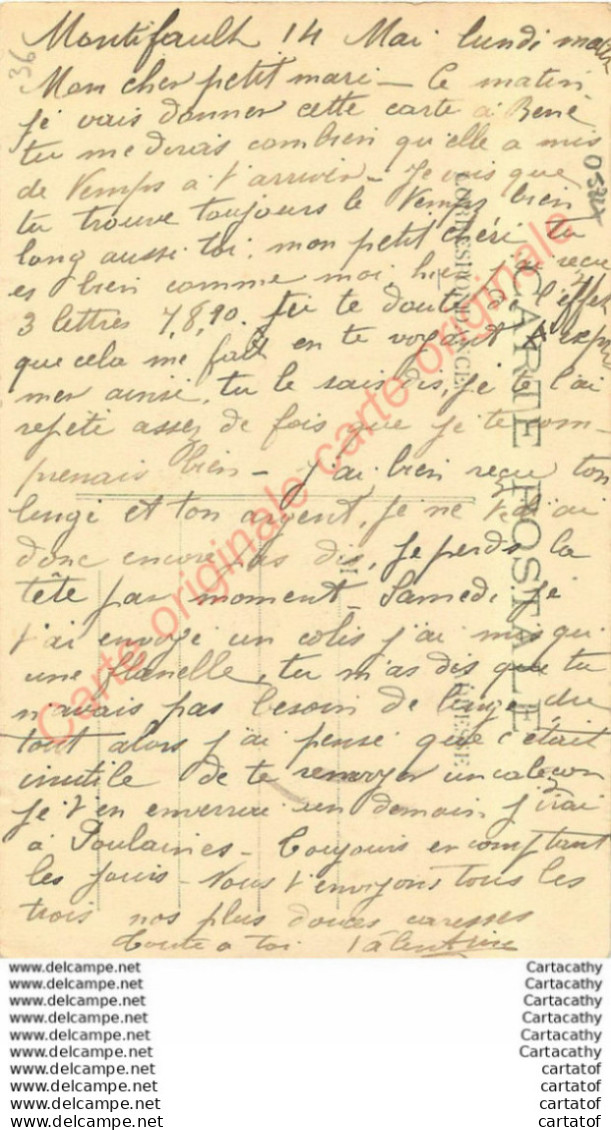 Montifault 14 Mai lundi matin
Mon cher petit mari – Ce matin
je vais donner cette carte à René
tu me diras combien qu'elle a mis
de temps a t'arriver – Je vois que
tu trouve toujours le temps bien
long aussi toi, mon petit chéri tu
es bien comme moi, hier j'ai reçu
3 lettres 7, 8, 90. tu te doute de l'effet
que cela me fait en te voyant t'expri
mer ainsi, tu le sais dis, je te l'ai
repété assez de fois que je te com
prenais bien – J'ai bien reçu ton
linge et ton argent, je ne te l'ai
donc encore pas dis, je perds la
tête par moment – Samedi je
t'ai envoyé un colis j'ai mis qui
une flanelle, tu m'as dis que tu
n'avais pas besoin de linge du
tout alors j'ai pensé que c'était
inutile de te renvoyer un caleçon
je t'en enverrai un demain, j'irai
à Poulaines – Toujours en comptant
les jours – Nous t'envoyons tous les
trois nos plus douces caresses
toute a toi Valentine
36
CARTE POSTALE
CORRESPONDANCE
ADRESSE
Carte originale carte originale
www.delcampe.net Cartacathy
www.delcampe.net Cartacathy
www.delcampe.net Cartacathy
www.delcampe.net Cartacathy
www.delcampe.net Cartacathy
www.delcampe.net Cartacathy
www.delcampe.net cartatof
www.delcampe.net cartatof
www.delcampe.net cartatof
www.delcampe.net cartatof